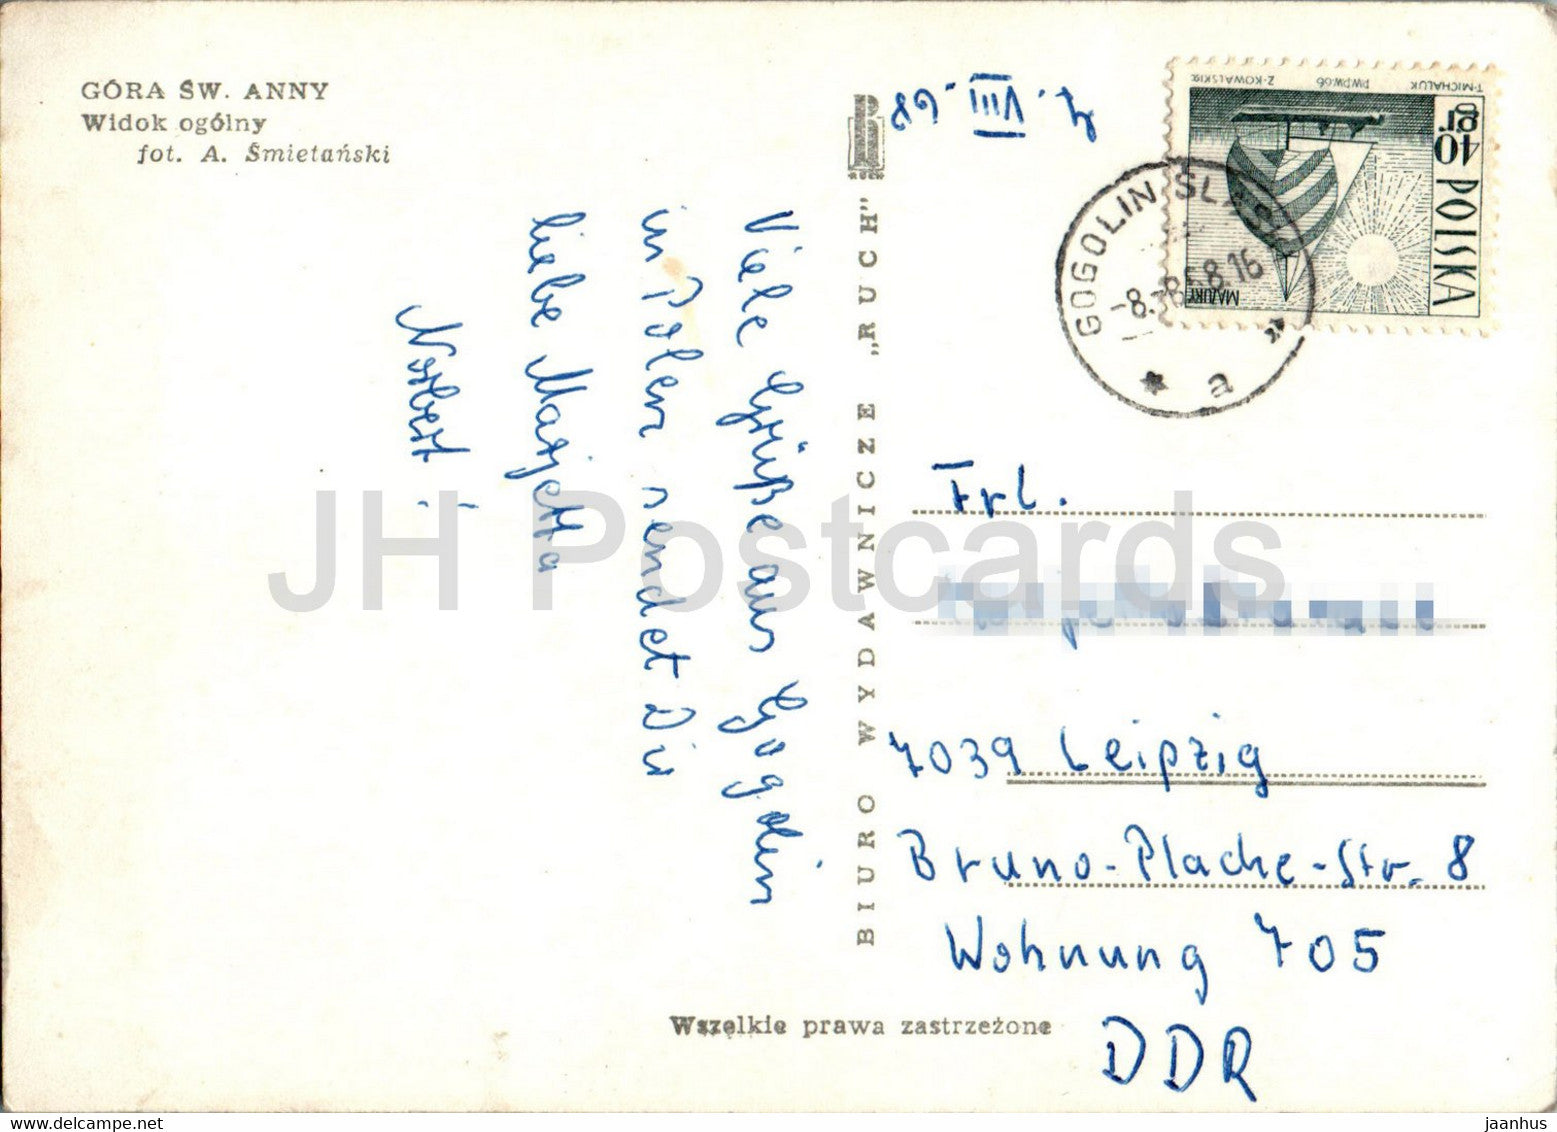 GÓRA ŚW. ANNY
Widok ogólny
fot. A. Śmietański
Viele Grüße aus Gogolin
in Polen sendet Dir
liebe Marjetta
Norbert!
BIURO WYDAWNICZE „RUCH"
Wszelkie prawa zastrzeżone
VIII. 68
T·MICHALUK PWPW·66 Z·KOWALSKI
40 gr
POLSKA
MAZURY
GOGOLIN
-8.-8
16
a
Frl.
7039 Leipzig
Bruno-Plache-Str. 8
Wohnung 705
DDR
JH Postcards
jaanhus